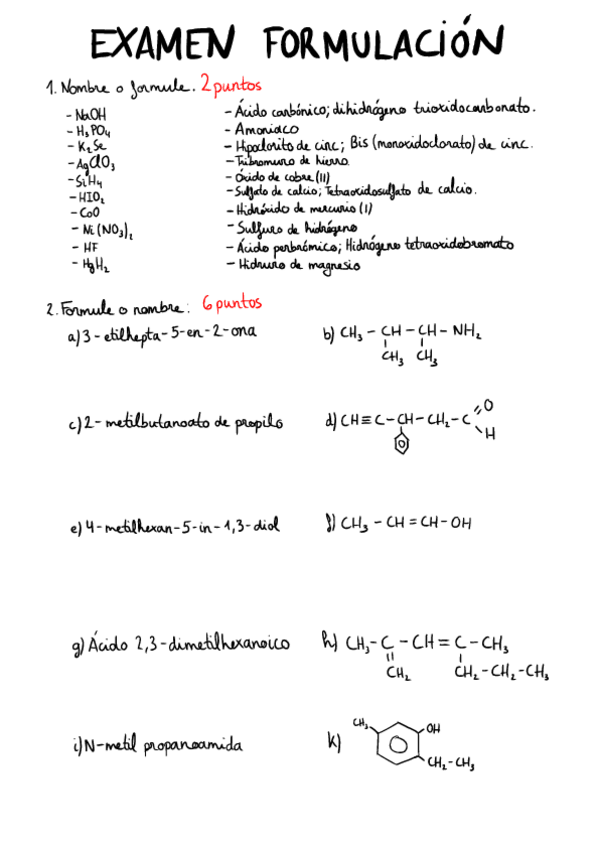 EXAMEN FORMULACIÓN
1. Nombre o formule. 2 puntos
- NaOH
- H₃PO₄
- K₂Se
- AgClO₃
- SiH₄
- HIO₂
- CoO
- Ni(NO₃)₂
- HF
- HgH₂
- Ácido carbónico; dihidrógeno trioxidocarbonato.
- Amoniaco
- Hipoclorito de cinc; Bis (monoxidoclorato) de cinc.
- Tribromuro de hierro.
- Óxido de cobre (II)
- Sulfato de calcio; Tetraoxidosulfato de calcio.
- Hidróxido de mercurio (I)
- Sulfuro de hidrógeno
- Ácido perbrómico; Hidrógeno tetraoxidobromato
- Hidruro de magnesio
2. Formule o nombre: 6 puntos
a) 3-etilhepta-5-en-2-ona
b) CH₃ - CH - CH - NH₂
CH₃ CH₃
c) 2-metilbutanoato de propilo
d) CH≡C-CH-CH₂-C
O
H
e) 4-metilhexan-5-in-1,3-diol
f) CH₃ - CH = CH - OH
g) Ácido 2,3-dimetilhexanoico
h) CH₃-C-CH=C-CH₃
CH₂ CH₂-CH₂-CH₃
i) N-metil propanoamida
k)
CH₃
OH
CH₂-CH₃